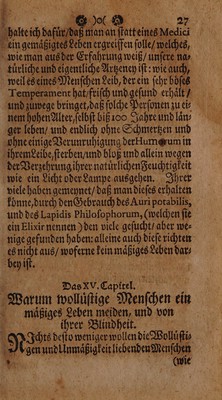 27
halte ich dafür / daß man an statt eines Medici
ein gemäßigtes Leben ergreiffen solle / welches,
wie man aus der Erfahrung weiß / unsere na-
türliche und eigentliche Artzeney ist: wie auch,
weil es eines Menschen Leib, der ein sehr böses
Temperament hat / frisch und gesund erhält /
und zuwege bringet, daß solche Personen zu ei-
nem hohen Alter, selbst biß 100 Jahre und län-
ger leben / und endlich ohne Schmertzen und
ohne einige Verunruhigung der Humorum in
ihrem Leibe, sterben / und bloß und allein wegen
der Verzehrung ihrer natürlichen Feuchtigkeit
wie ein Licht oder Lampe ausgehen. Ihrer
viele haben gemeynet / daß man dieses erhalten
könne, durch den Gebrauch des Auri potabilis,
und des Lapidis Philosophorum, (welchen sie
ein Elixir nennen) den viele gesucht / aber we-
nige gefunden haben: alleine auch diese richten
es nicht aus / woferne kein mäßiges Leben dar-
bey ist.
Das XV. Capitel.
Warum wollüstige Menschen ein
mäßiges Leben meiden, und von
ihrer Blindheit.
NIchts desto weniger wollen die Wollüsti-
gen und Unmäßigkeit liebenden Menschen
(wie